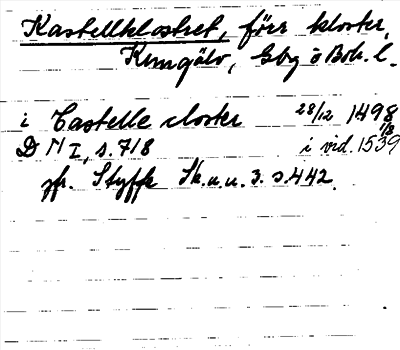 Kastellklostret, förr kloster,
Kungälv, Gbg o Boh. l.
i Castelle closter 28/12 1498
D N I, s. 718 i vid. 1539
jfr. Styffe Sk. u. u. 3. s. 442.